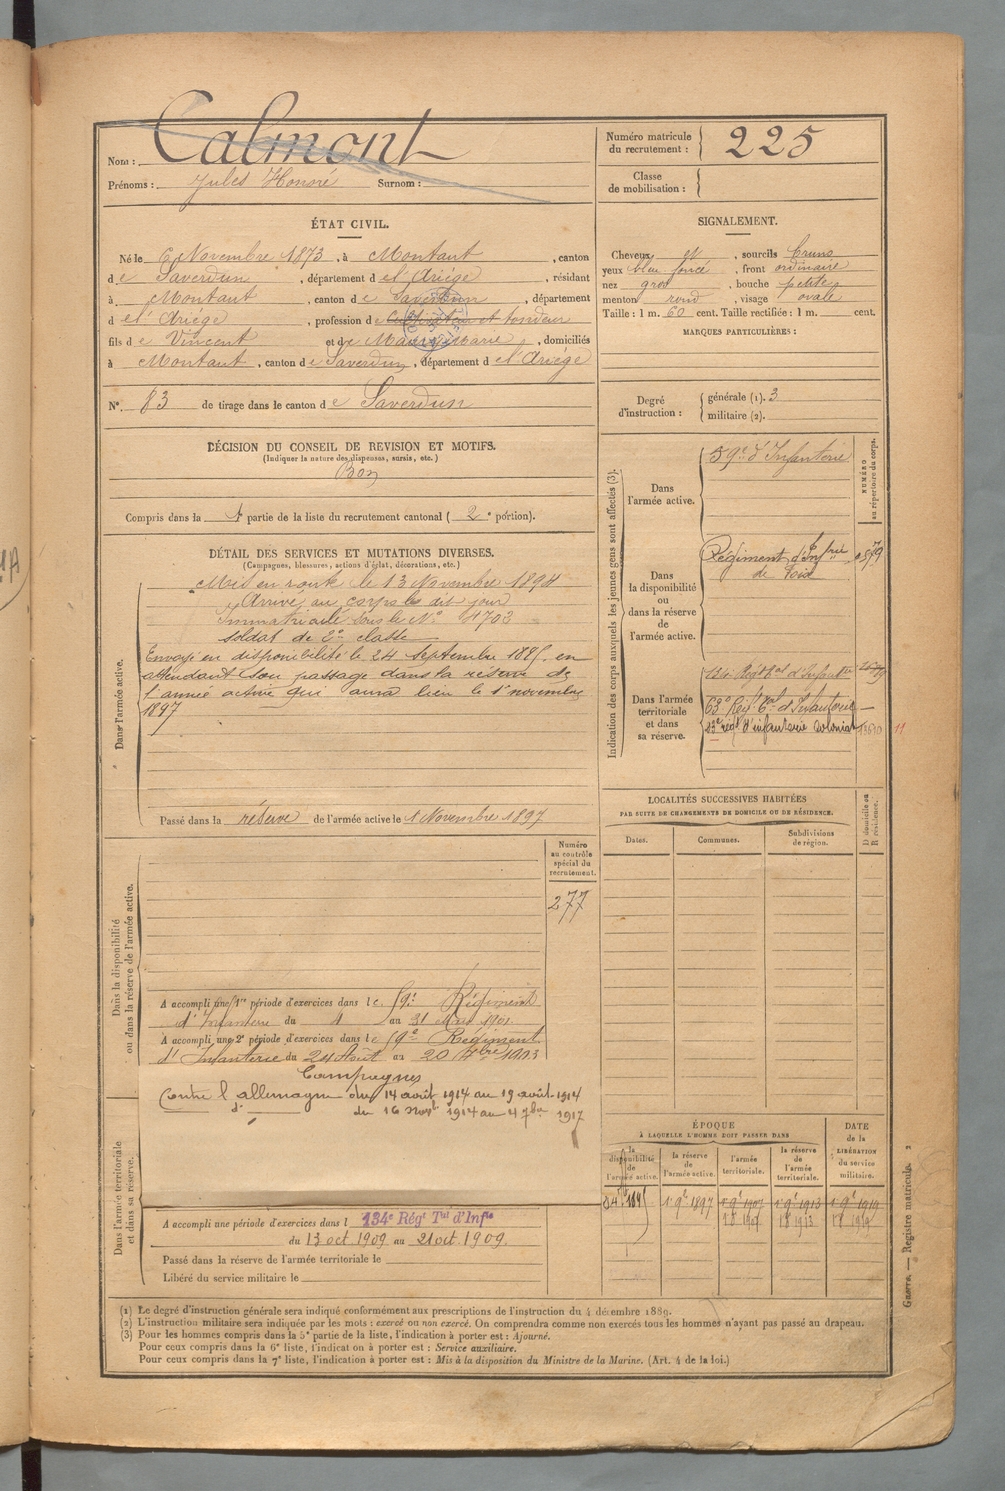 Nom : Calmont
Prénoms : Jules Honoré Surnom :
Numéro matricule du recrutement : 225
Classe de mobilisation :
ÉTAT CIVIL.
Né le 6 Novembre 1873, à Montaut, canton
de Saverdun, département de l'Ariège, résidant
à Montaut, canton de Saverdun, département
de l'Ariège, profession de et tondeur
fils de Vincent et de marie, domiciliés
à Montaut, canton de Saverdun, département de l'Ariège
N° 83 de tirage dans le canton de Saverdun
SIGNALEMENT.
Cheveux et, sourcils bruns
yeux bleu foncé, front ordinaire
nez gros, bouche petite
menton rond, visage ovale
Taille : 1 m. 60 cent. Taille rectifiée : 1 m. cent.
MARQUES PARTICULIÈRES :
Degré d'instruction : générale (1). 3
militaire (2).
DÉCISION DU CONSEIL DE REVISION ET MOTIFS.
(Indiquer la nature des dispenses, sursis, etc.)
Bon
Compris dans la partie de la liste du recrutement cantonal (2e portion).
DÉTAIL DES SERVICES ET MUTATIONS DIVERSES.
(Campagnes, blessures, actions d'éclat, décorations, etc.)
Dans l'armée active.
Mis en route le 13 Novembre 1894
Arrivé au corps le dit jour
Immatriculé sous le N° 4703
soldat de 2e classe
Envoyé en disponibilité le 24 septembre en
attendant son passage dans la réserve de
l'armée active qui aura lieu le 1er novembre
1897
Passé dans la réserve de l'armée active le 1 Novembre 1897
Indication des corps auxquels les jeunes gens sont affectés (3).
NUMÉRO au répertoire du corps.
Dans l'armée active.
59e d'Infanterie
Dans la disponibilité ou dans la réserve de l'armée active.
Régiment d'Inf
de Foix
Dans l'armée territoriale et dans sa réserve.
134e Régt tal d'Infant
63e Régt tal d'Infanterie
régt d'infanterie colonial
11
LOCALITÉS SUCCESSIVES HABITÉES
PAR SUITE DE CHANGEMENTS DE DOMICILE OU DE RÉSIDENCE.
Dates. Communes. Subdivisions de région.
D domicile ou R résidence.
Dans la disponibilité ou dans la réserve de l'armée active.
Numéro au contrôle spécial du recrutement.
277
A accompli une 1re période d'exercices dans le 59e Régiment
d'Infanterie du 4 au 31 Mars 1901
A accompli une 2e période d'exercices dans le 59e Régiment
d'Infanterie du 24 Août au 20
Campagnes
Contre l'allemagne du 14 août 1914 au 19 août 1914
d° du 16 1914 au 4 7bre 1917
Dans l'armée territoriale et dans sa réserve.
A accompli une période d'exercices dans l 134e Régt Tal d'Infie
du 13 oct 1909 au 21 oct. 1909.
Passé dans la réserve de l'armée territoriale le
Libéré du service militaire le
ÉPOQUE
À LAQUELLE L'HOMME DOIT PASSER DANS
la disponibilité de l'armée active. la réserve de l'armée active. l'armée territoriale. la réserve de l'armée territoriale.
DATE de la LIBÉRATION du service militaire.
1 9bre 1897
(1) Le degré d'instruction générale sera indiqué conformément aux prescriptions de l'instruction du 4 décembre 1889.
(2) L'instruction militaire sera indiquée par les mots : exercé ou non exercé. On comprendra comme non exercés tous les hommes n'ayant pas passé au drapeau.
(3) Pour les hommes compris dans la 5e partie de la liste, l'indication à porter est : Ajourné.
Pour ceux compris dans la 6e liste, l'indication à porter est : Service auxiliaire.
Pour ceux compris dans la 7e liste, l'indication à porter est : Mis à la disposition du Ministre de la Marine. (Art. 4 de la loi.)
Guerre. — Registre matricule. 2